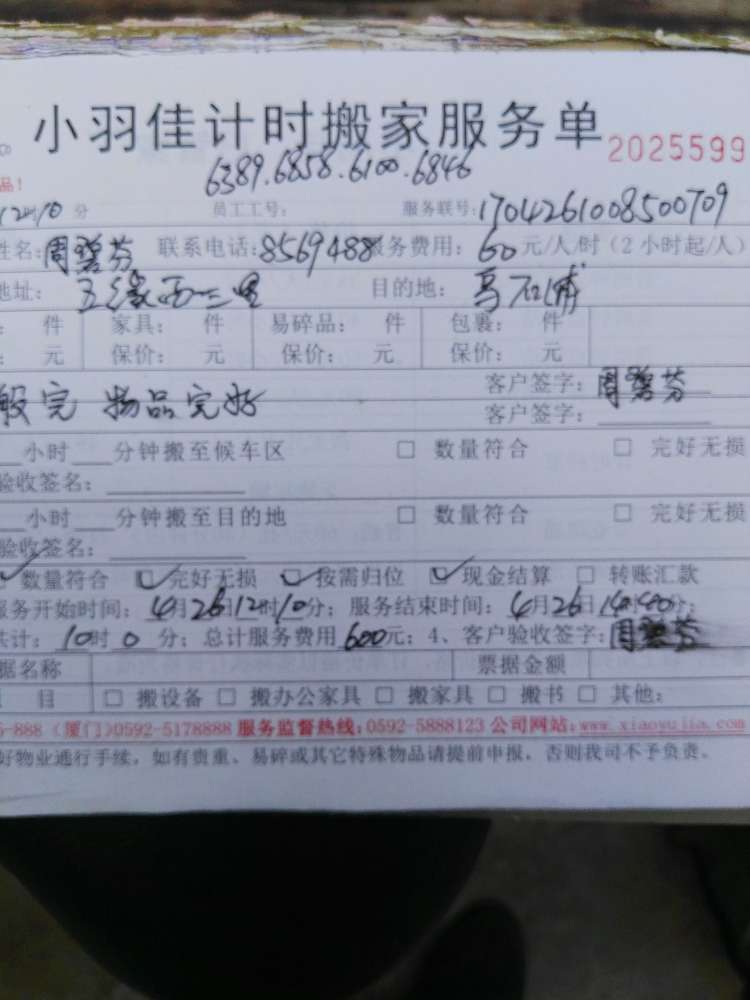 小羽佳计时搬家服务单 2025599
6389.6858.6100.6846
品！
12时10分 员工工号： 服务联号：17042610085​00709
姓名：周碧芬 联系电话：8569488 服务费用：60元/人/时（2小时起/人）
地址：五缘西三里 目的地：马石浦
： 件 家具： 件 易碎品： 件 包裹： 件
： 元 保价： 元 保价： 元 保价： 元
般完 物品完好 客户签字：周碧芬
客户签字：
小时 分钟搬至候车区 □ 数量符合 □ 完好无损
验收签名：
小时 分钟搬至目的地 □ 数量符合 □ 完好无损
验收签名：
☑ 数量符合 ☑ 完好无损 ☑ 按需归位 ☑ 现金结算 □ 转账汇款
服务开始时间：4月26日12时10分；服务结束时间：4月26日14时40分；
共计：10时0分；总计服务费用600元；4、客户验收签字：周碧芬
据名称 票据金额
目 □ 搬设备 □ 搬办公家具 □ 搬家具 □ 搬书 □ 其他：
6-888（厦门）0592-5178888 服务监督热线：0592-5888123 公司网站：www.xiaoyujia.com
好物业通行手续，如有贵重、易碎或其它特殊物品请提前申报，否则我司不予负责。